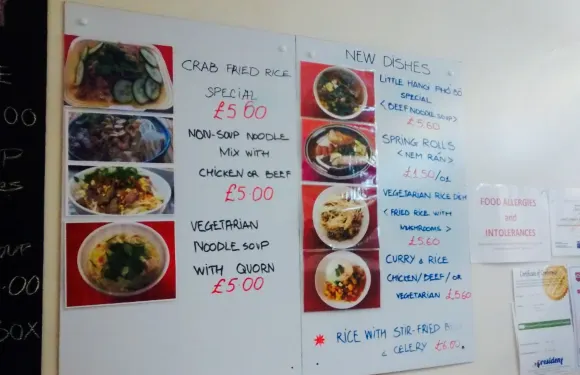 CRAB FRIED RICE
SPECIAL
£5.00
NON-SOUP NOODLE
MIX WITH
CHICKEN OR BEEF
£5.00
VEGETARIAN
NOODLE SOUP
WITH QUORN
£5.00
NEW DISHES
LITTLE HANOI PHỞ BÒ
SPECIAL
<BEEF NOODLE SOUP>
£5.60
SPRING ROLLS
<NEM RÁN>
£1.50/
VEGETARIAN RICE DISH
<FRIED RICE WITH
MUSHROOMS>
£5.60
CURRY & RICE
CHICKEN/BEEF/OR
VEGETARIAN £5.60
* RICE WITH STIR-FRIED
& CELERY £6.50
FOOD ALLERGIES
and
INTOLERANCES
00
.00
BOX
President